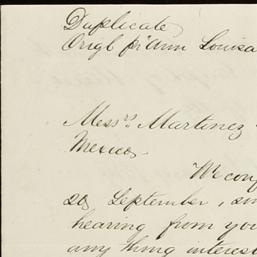 Duplicate
Origl pr Ann Louisa
Messrs Martinez
Mexico
We conf
20 September, sin
hearing from you
any thing interest